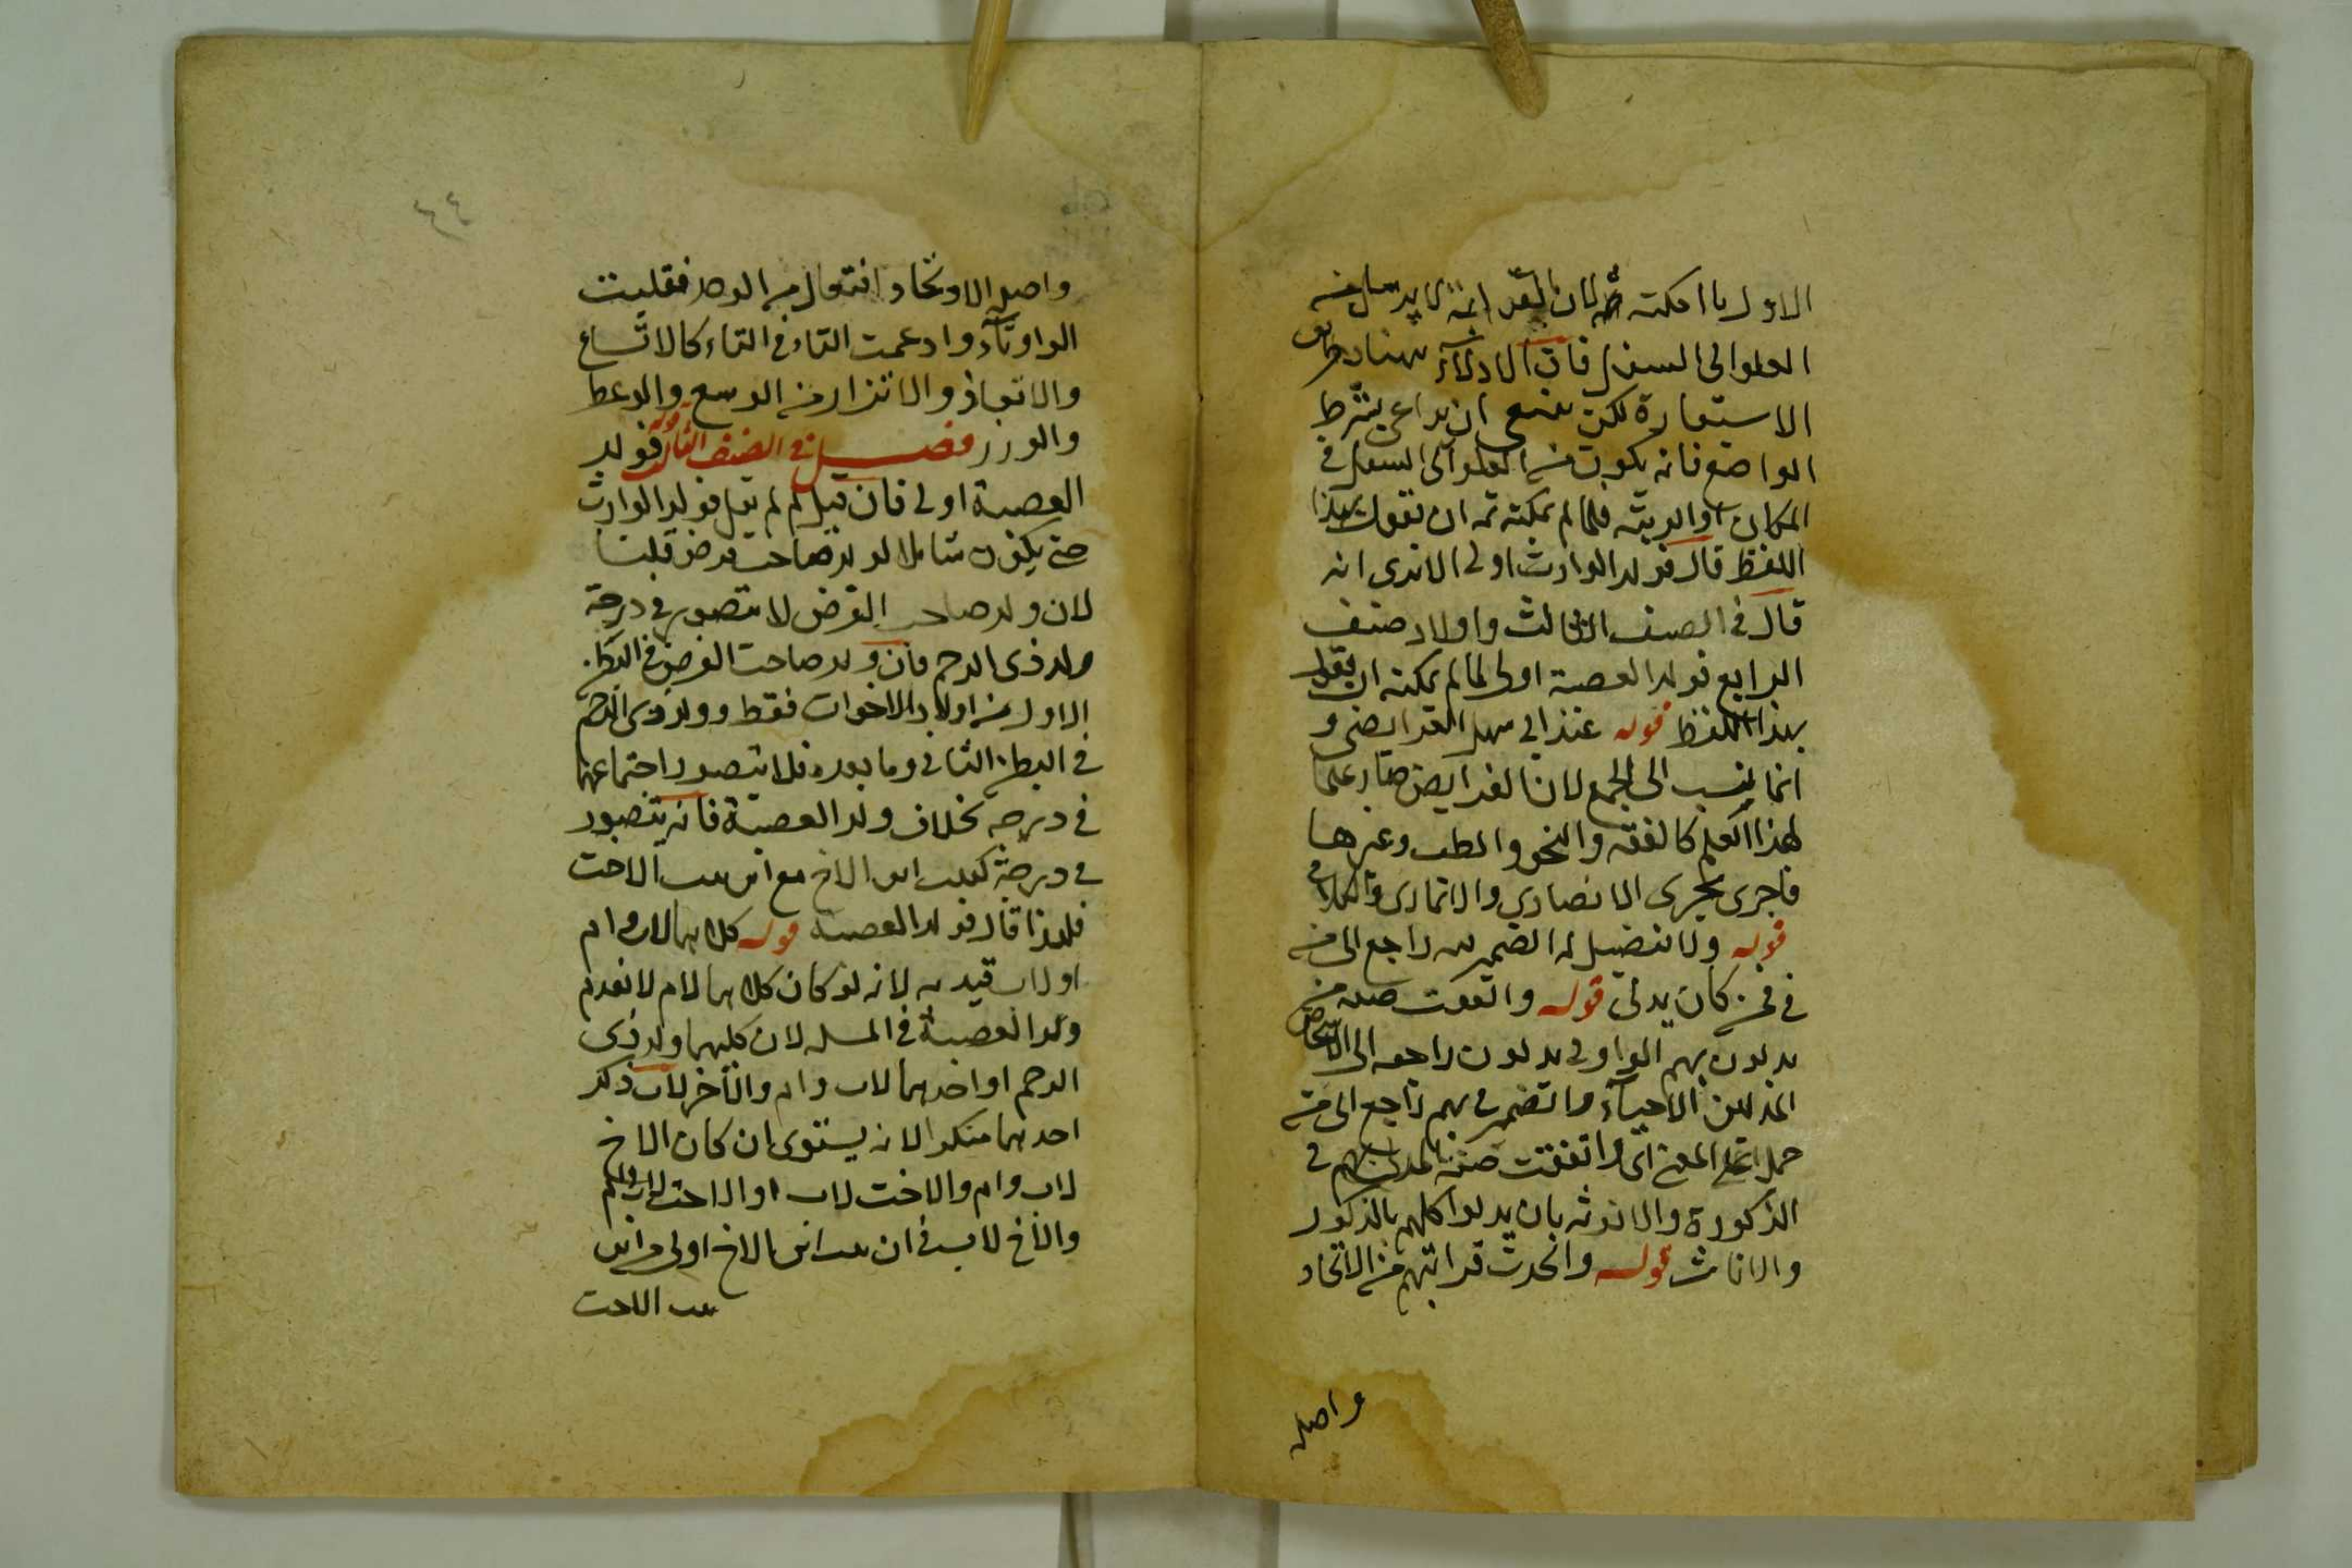 الاول
العلو الى السفل فان الادلاء
الاستعارة لكن ينبغي ان يراعى بشرط
الواضع فانه يكون من العلو الى السفل في
المكان او الرتبة فلما لم يمكنه ثمه ان يقول بهذا
اللفظ قال فولد الوارث اولى الا ترى انه
قال في الصنف الثالث واولاد صنف
الرابع فولد العصبة اولى لما لم يمكنه ان يقول
بهذا اللفظ قوله عند ابي سهل الفرايضى و
انما ينسب الى الجمع لان الفرايض صار علما
لهذا العلم كالفقه والنحو والطب وغيرها
فاجرى مجرى الانصاري والانماري والكلابي
قوله ولا تفضيل له الضمير راجع الى من
في فمن كان يدلى قوله واتفقت صفة من
يدلون بهم الواو في يدلون راجعه الى الاشخاص
المدلين الاحياء والضمير في بهم راجع الى من
حملا على المعنى اى واتفقت صفة المدلى بهم في
الذكورة والانوثه بان يدلوا كلهم بالذكور
والاناث قوله واتحدت قرابتهم من الاتحاد
واصل
٤٤
واصل الاوتحاد افتعال من الوحد فقلبت
الواو تآء وادغمت التاء في التاء كالاتساع
والاتعاظ والاتزار من الوسع والوعظ
والوزر فصل في الصنف الثالث قوله فولد
العصبة اولى فان قيل لم لم يقل فولد الوارث
حتى يكون شاملا لولد صاحب فرض قلنا
لان ولد صاحب الفرض لا يتصور في درجة
ولد ذى الرحم فان ولد صاحب الفرض في البطن
الاول من اولاد الاخوات فقط وولد ذوى الرحم
في البطن الثاني وما بعده فلا يتصور اجتماعهما
في درجه بخلاف ولد العصبة فانه يتصور
في درجة كبنت ابن الاخ مع ابن بنت الاخت
فلهذا قال فولد العصبة قوله كلاهما لاب وام
او لاب قيد به لانه لو كان كلاهما لام لانعدم
ولد العصبة في المسله لان كليهما ولد ذى
الرحم او احدهما لاب وام والآخر لاب ذكر
احدهما منكرا لانه يستوى ان كان الاخ
لاب وام والاخت لاب او الاخت لاب وام
والاخ لاب في ان بنت ابن الاخ اولى من ابن
بنت الاخت